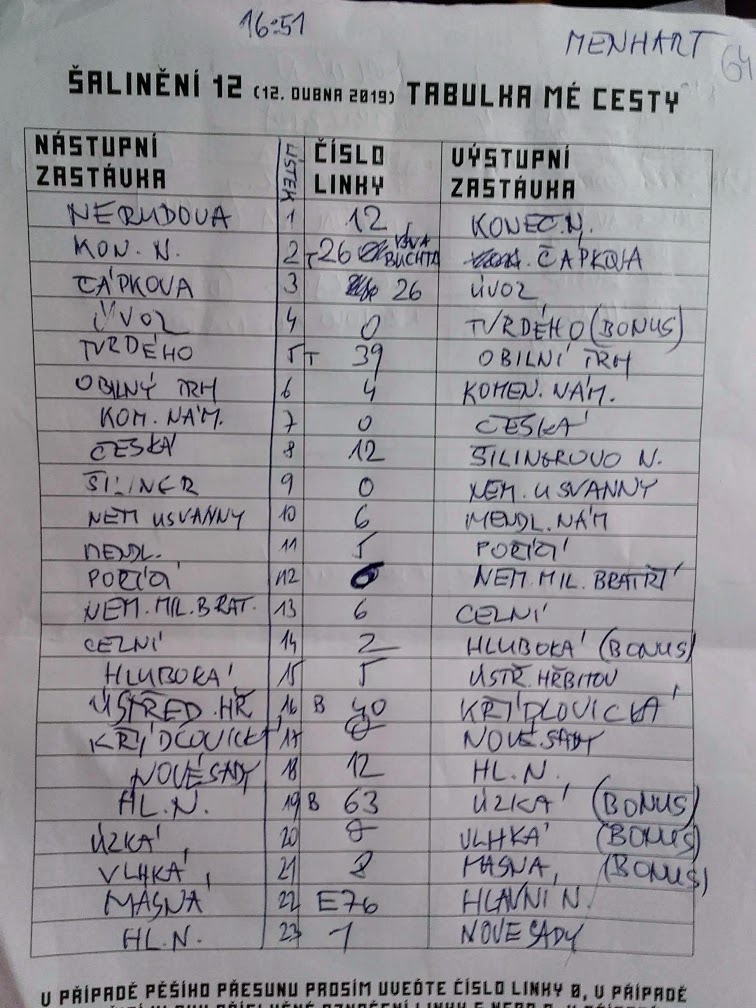 16:51
MENHART 64
ŠALINĚNÍ 12 (12. DUBNA 2019) TABULKA MÉ CESTY
NÁSTUPNÍ ZASTÁVKA LÍSTEK ČÍSLO LINKY VÝSTUPNÍ ZASTÁVKA
NERUDOVA 1 12 KONEČ.N.
KON. N. 2 T26 BUCHTA ČÁPKOVA
ČÁPKOVA 3 26 ÚVOZ
ÚVOZ 4 0 TVRDÉHO (BONUS)
TVRDÉHO 5 T 39 OBILNÍ TRH
OBILNÝ TRH 6 4 KOMEN. NÁM.
KOM. NÁM. 7 0 ČESKÁ
ČESKÁ 8 12 ŠILINGROVO N.
ŠILINGR 9 0 NEM. U SV ANNY
NEM U SV ANNY 10 6 MENDL. NÁM
MENDL. 11 5 POŘÍČÍ
POŘÍČÍ 12 6 NEM. MIL. BRATŘÍ
NEM. MIL. BRAT. 13 6 CELNÍ
CELNÍ 14 2 HLUBOKÁ (BONUS)
HLUBOKÁ 15 5 ÚSTŘ. HŘBITOV
ÚSTŘED. HŘ 16 B 40 KŘÍDLOVICKÁ
KŘÍDLOVICKÁ 17 0 NOVÉ SADY
NOVÉ SADY 18 12 HL. N.
HL. N. 19 B 63 ÚZKÁ (BONUS)
ÚZKÁ 20 8 VLHKÁ (BONUS)
VLHKÁ 21 8 MASNÁ (BONUS)
MASNÁ 22 E76 HLAVNÍ N.
HL. N. 23 1 NOVÉ SADY
V PŘÍPADĚ PĚŠÍHO PŘESUNU PROSÍM UVEĎTE ČÍSLO LINKY 0, V PŘÍPADĚ